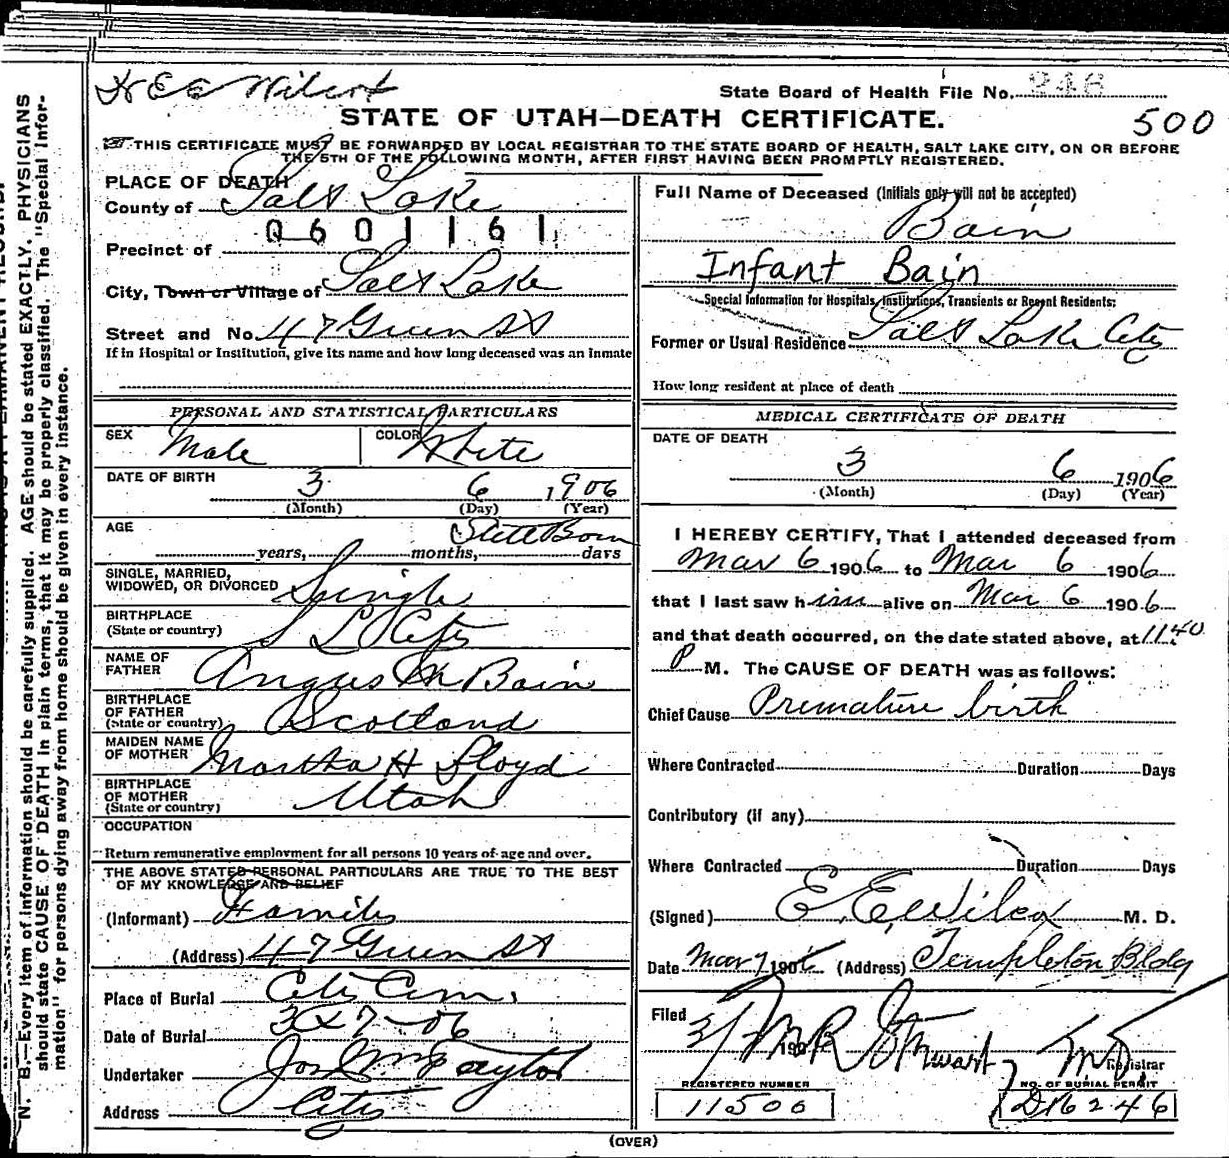 State Board of Health File No. 246
500
STATE OF UTAH—DEATH CERTIFICATE.
THIS CERTIFICATE MUST BE FORWARDED BY LOCAL REGISTRAR TO THE STATE BOARD OF HEALTH, SALT LAKE CITY, ON OR BEFORE
THE 5TH OF THE FOLLOWING MONTH, AFTER FIRST HAVING BEEN PROMPTLY REGISTERED.
PLACE OF DEATH
County of Salt Lake
0601161
Precinct of
City, Town or Village of Salt Lake
Street and No. 47 Green St
If in Hospital or Institution, give its name and how long deceased was an Inmate
PERSONAL AND STATISTICAL PARTICULARS
SEX Male COLOR White
DATE OF BIRTH 3 6 1906
(Month) (Day) (Year)
AGE Still Born
years, months, days
SINGLE, MARRIED,
WIDOWED, OR DIVORCED Single
BIRTHPLACE
(State or country) S L City
NAME OF
FATHER Angus M Bain
BIRTHPLACE
OF FATHER
(State or country) Scotland
MAIDEN NAME
OF MOTHER Martha H Lloyd
BIRTHPLACE
OF MOTHER
(State or country) Utah
OCCUPATION
Return remunerative employment for all persons 10 years of age and over.
THE ABOVE STATED PERSONAL PARTICULARS ARE TRUE TO THE BEST
OF MY KNOWLEDGE AND BELIEF
(Informant) Family
(Address) 47 Green St
Place of Burial City Cem.
Date of Burial 3 x 7 - 06
Undertaker Jos Wm Taylor
Address City
Full Name of Deceased (Initials only will not be accepted)
Bain
Infant Bain
Special Information for Hospitals, Institutions, Transients or Recent Residents:
Former or Usual Residence Salt Lake City
How long resident at place of death
MEDICAL CERTIFICATE OF DEATH
DATE OF DEATH
3 6 1906
(Month) (Day) (Year)
I HEREBY CERTIFY, That I attended deceased from
Mar 6 1906 to Mar 6 1906
that I last saw him alive on Mar 6 1906
and that death occurred, on the date stated above, at 11.40
P M. The CAUSE OF DEATH was as follows:
Chief Cause Premature birth
Where Contracted Duration Days
Contributory (if any)
Where Contracted Duration Days
(Signed) E. E. Wilcox M. D.
Date Mar 7 1906 (Address) Templeton Bldg
Filed
3/ 190 M R Stewart MD
Registrar
REGISTERED NUMBER
11500
NO. OF BURIAL PERMIT
D16246
(OVER)
N. B.—Every item of information should be carefully supplied. AGE should be stated EXACTLY. PHYSICIANS
should state CAUSE OF DEATH in plain terms, that it may be properly classified. The "Special Infor-
mation" for persons dying away from home should be given in every instance.